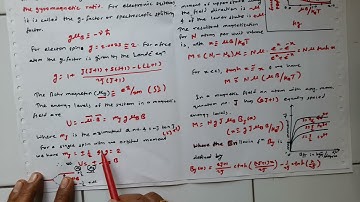 the gyromagnetic ratio. For electronic system,
it is called the g-factor or spectroscopic splitting
factor.
gμB = -γħ
For electron spin g = 2.0023 ≅ 2. For a free
atom the g factor is given by the Landé eqn
g = 1 + J(J+1) + S(S+1) - L(L+1) / 2J(J+1)
The Bohr magneton (μB) = eħ/2m (SI)
The energy levels of the system in a magnetic
field are
U = -μ·B = mJ g μB B
Where mJ is the azimuthal q. n. &
For a single spin with no orbital moment
we have mJ = ± ½ & g = 2
∴ U = ± μB B
a magnetic
field is
of the lower state is
The resultant magnetization
for N atom per unit volume
is, with x = μB/kBT
M = (N1 - N2) μ = Nμ · = Nμ tanh x
For x<<1, tanh x ≈ x and we have
M ≅ Nμ (μB/kBT)
In a magnetic field an atom with ang. mom.
quantum no J has (2J+1) equally spaced
energy levels.
M = N g J μB BJ(x)
(x = gJμB B/kBT)
Where the Brillouin fn BJ is
defined by
BJ(x) = 2J+1/2J ctnh ((2J+1)x/2J) - 1/2J ctnh (x/2J)